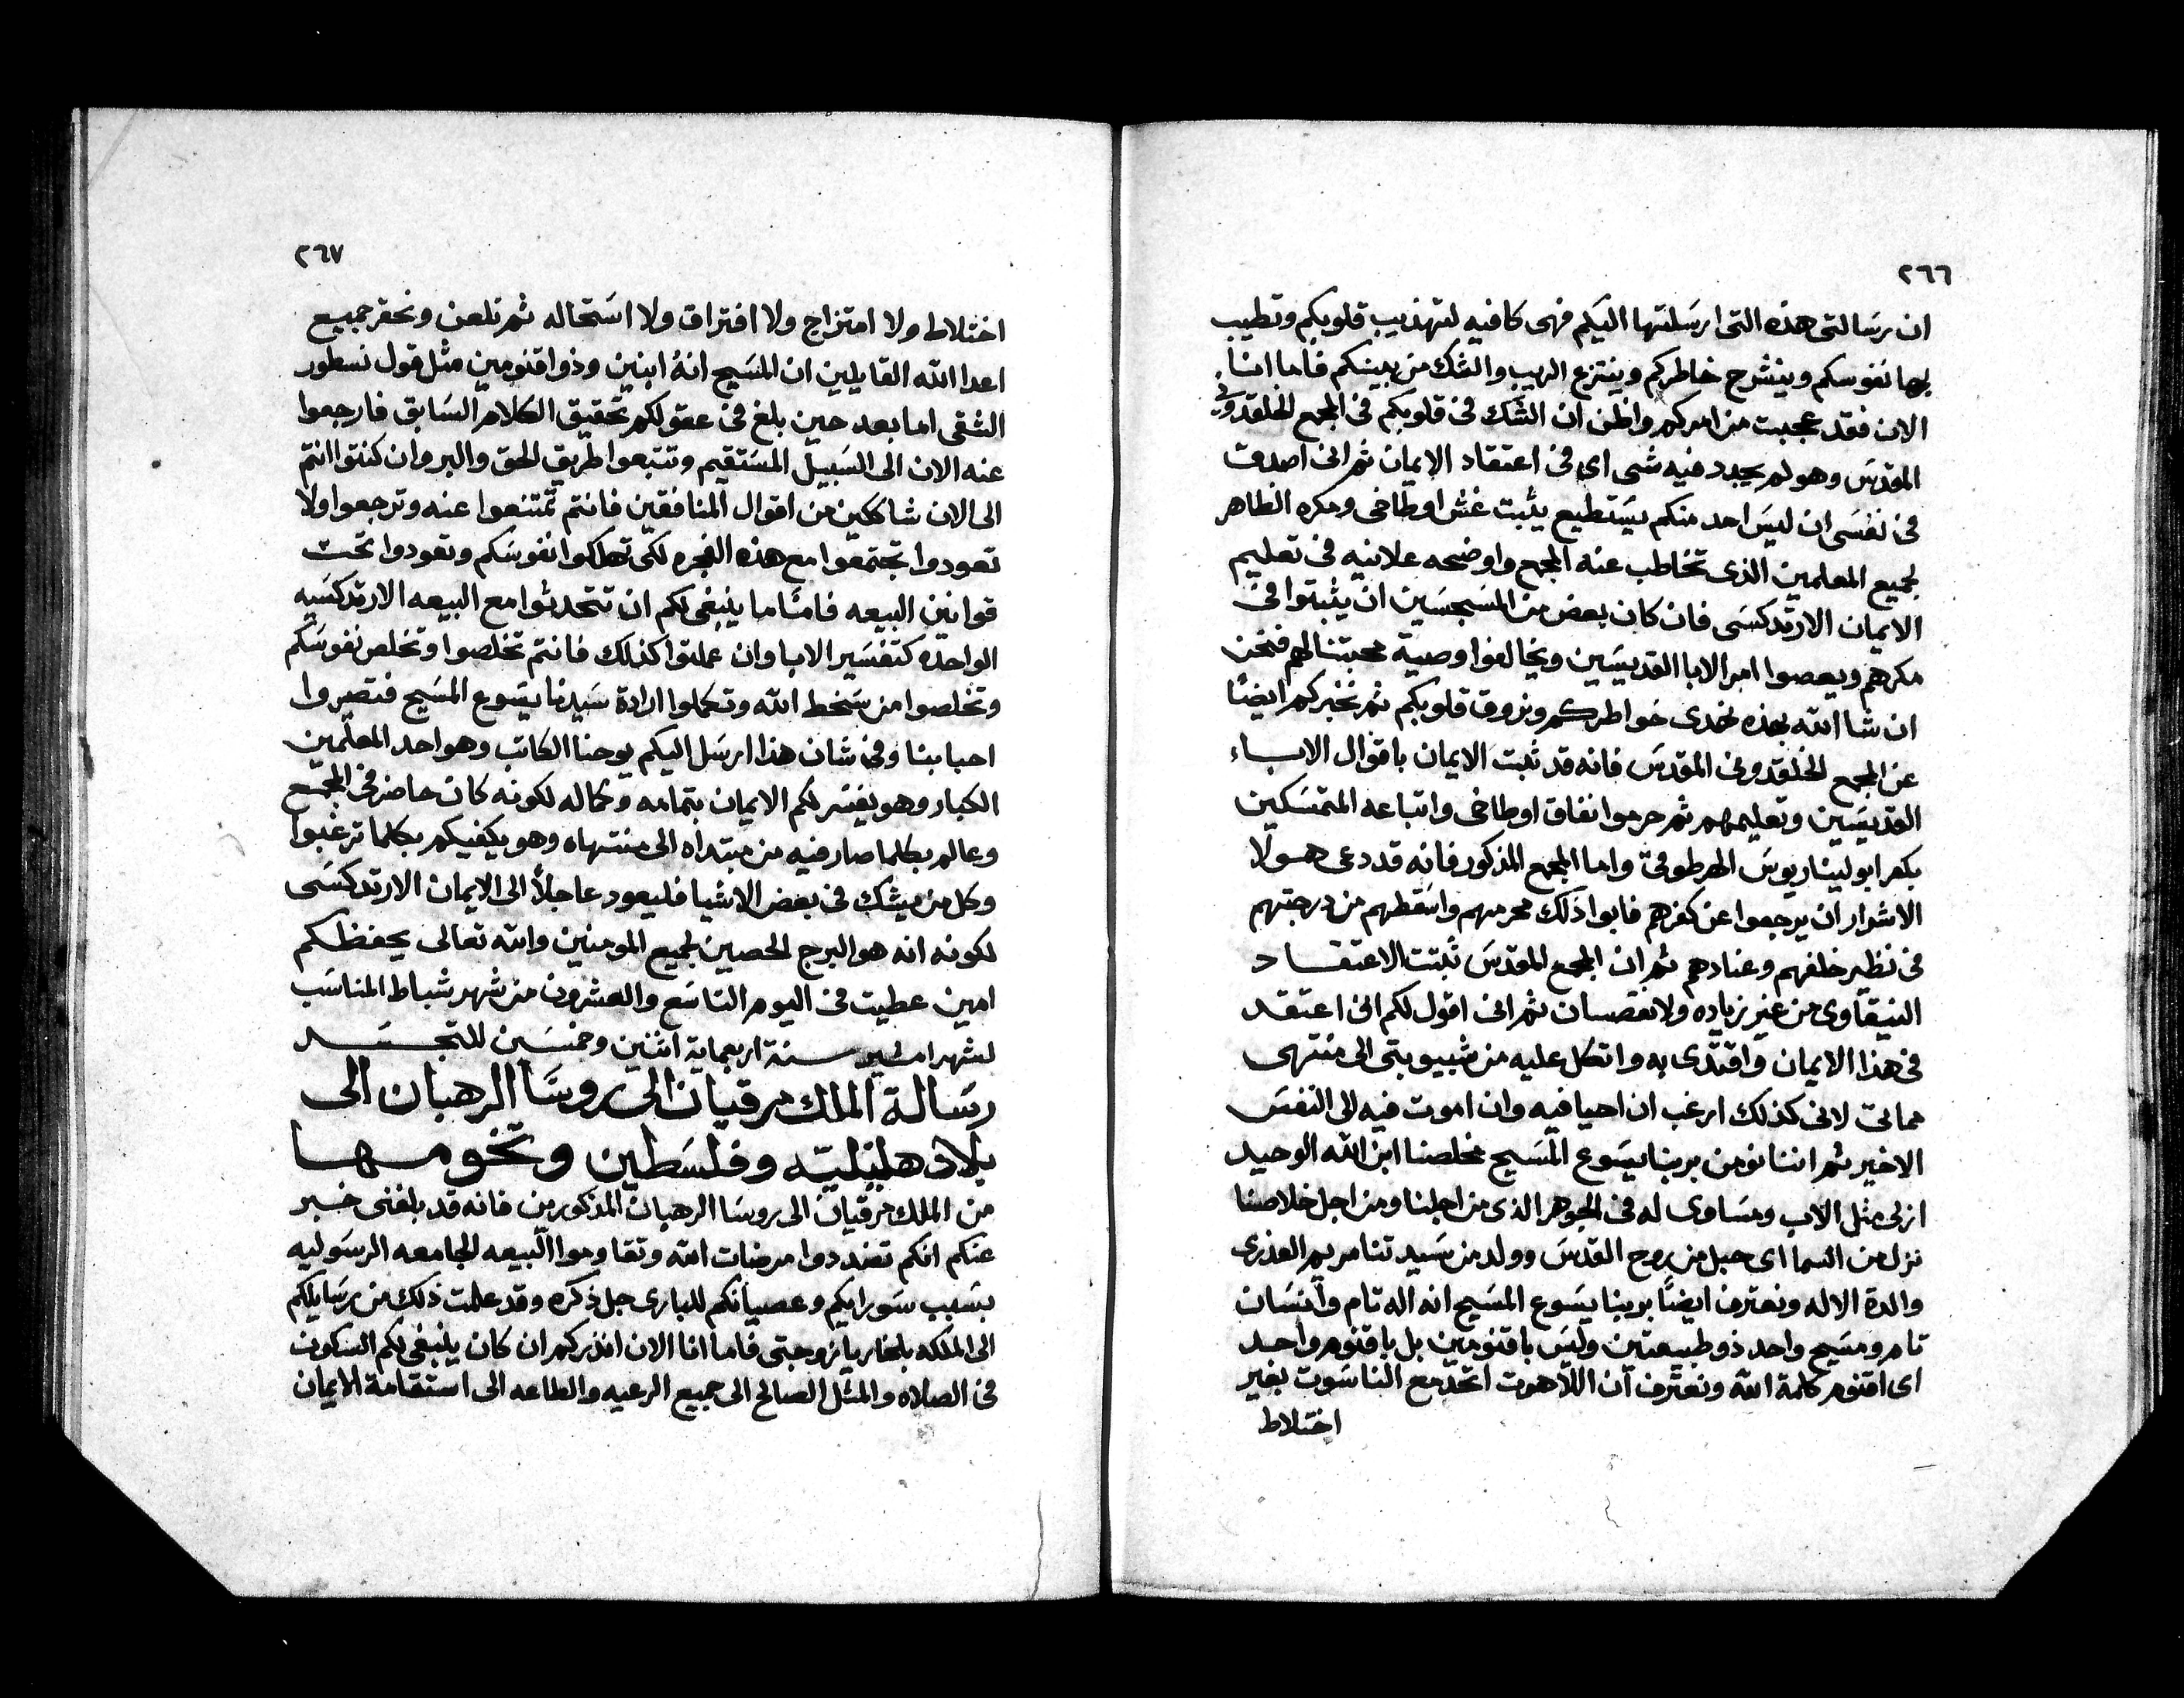 ٢٦٦
ان رسالتى هذه التى ارسلتها اليكم فهى كافيه لتهذيب قلوبكم وتطيب
بها نفوسكم وينشرح خاطركم وينتزع الريب والشك من بينكم فاما انا
الان فقد عجبت من امركم واظن ان الشك فى قلوبكم فى المجمع الخلقدونى
المقدس وهو لم يجدد فيه شى اى فى اعتقاد الايمان ثم انى اصدق
فى نفسى ان ليس احد منكم يستطيع يثبت غش اوطاخى ومكره الظاهر
لجميع المعلمين الذى تخاطب عنه المجمع واوضحه علانيه فى تعليم
الايمان الارتدكسى فان كان بعض من المسجسين ان يثبتوا فى
مكرهم ويعصوا امر الابا القديسين ويخالفوا وصية محبتنا لهم فنحن
ان شا الله بهذه نهدى خواطركم ونروق قلوبكم ثم نخبركم ايضًا
عن المجمع الخلقدونى المقدس فانه قد ثبت الايمان باقوال الاباء
القديسين وتعليمهم ثم حرموا نفاق اوطاخى واتباعه المتمسكين
بكفر ابوليناريوس الهرطوقى واما المجمع المذكور فانه قد دعى هولا
الاشرار ان يرجعوا عن كفرهم فابوا ذلك فحرمهم واسقطهم من درجتهم
فى نظير خلفهم وعنادهم ثم ان المجمع المقدس ثبتت الاعتقاد
النيقاوى من غير زياده ولا نقصان ثم انى اقول لكم انى اعتقد
فى هذا الايمان واقتدى به واتكل عليه من شبيوبتى الى منتهى
مماتى لانى كذلك ارغب ان احيا فيه وان اموت فيه الى النفس
الاخير ثم اننا نومن بربنا يسوع المسيح مخلصنا ابن الله الوحيد
ازلى مثل الاب ومساوى له فى الجوهر الذى من اجلنا ومن اجل خلاصنا
نزل من السما اى حبل من روح القدس وولد من سيدتنا مريم العذرى
والدة الاله ونعترف ايضًا بربنا يسوع المسيح انه اله تام وانسان
تام ومسيح واحد ذو طبيعتين وليس باقنومين بل باقنوم واحد
اى اقنوم كلمة الله ونعترف ان اللاهوت اتحد مع الناسوت بغير
اختلاط
٢٦٧
اختلاط ولا امتزاج ولا افتراق ولا استحاله ثم نلعن ونحقر جميع
اعدا الله القايلين ان المسيح انهُ ابنين وذو اقنومين مثل قول نسطور
الشقى اما بعد حين بلغ فى عقولكم تحقيق الكلام السابق فارجعوا
عنه الان الى السبيل المستقيم وتتبعوا طريق الحق والبر وان كنتوا انتم
الى الان شاككين من اقوال المنافقين فانتم تمتنعوا عنه وترجعوا ولا
تعودوا تجتمعوا مع هذه الفجره لكى تهلكوا نفوسكم وتعودوا تحت
قوانين البيعه فامّا ما ينبغى لكم ان تتحدثوا مع البيعه الارتدكسيه
الواحده كتفسير الابا وان عملتوا كذلك فانتم تخلصوا وتخلص نفوسكم
وتخلصوا من سخط الله وتكملوا ارادة سيدنا يسوع المسيح فتصيروا
احبابنا وفى شان هذا ارسل اليكم يوحنا الكاتب وهو احد المعلمين
الكبار وهو يفسر لكم الايمان بتمامه وكماله لكونه كان حاضر فى المجمع
وعالم بكلما صار فيه من مبتداه الى منتهاه وهو يكفيكم بكلما ترغبوا
وكل من يشك فى بعض الاشيا فليعود عاجلاً الى الايمان الارتدكسى
لكونه انه هو البرج الحصين لجميع المومنين والله تعالى يحفظكم
امين عطيت فى اليوم التاسع والعشرون من شهر شباط المناسب
لشهر امشير سنة اربعماية اثنين وخمسين للتجسد
رسالة الملك مرقيان الى روسا الرهبان الى
بلاد هلينليته وفلسطين وتخومها
من الملك مرقيان الى روسا الرهبان المذكورين فانه قد بلغنى خبر
عنكم انكم تضددوا مرضات الله وتقاوموا البيعه الجامعه الرسوليه
بسبب سو رايكم وعصيانكم للبارى جل ذكره وقد علمت ذلك من رسايلكم
الى الملكه بلخاريا زوجتى فاما انا الان انذركم ان كان ينبغى لكم السكون
فى الصلاه والمثل الصالح الى جميع الرعيه والطاعه الى استقامة الايمان